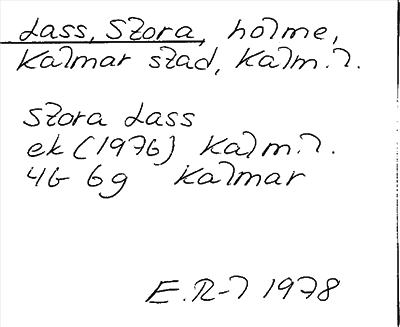 Lass, Stora, holme,
Kalmar stad, Kalm.l.
Stora Lass
ek (1976) Kalm.l.
4G 6g Kalmar
E.R-l 1978